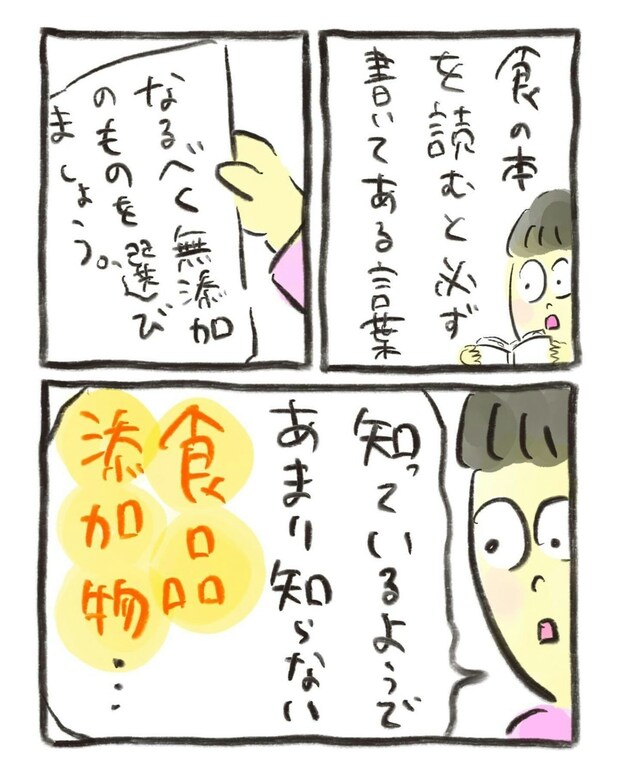 食の本
を読むと必ず
書いてある言葉
なるべく無添加
のものを選び
ましょう。
知っているようで
あまり知らない
食品
添加物…